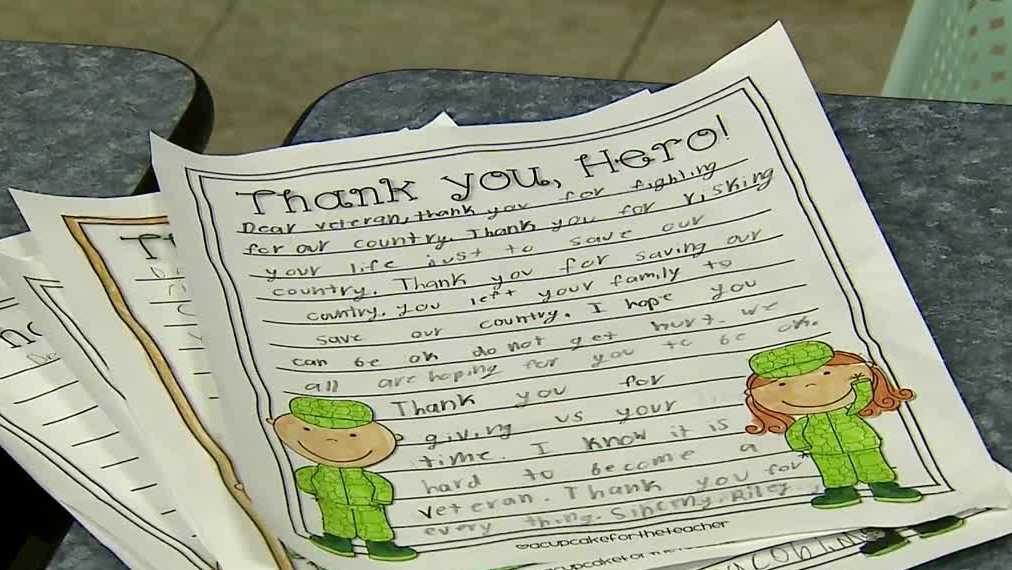 Thank you, Hero!
Dear veteran, thank you for fighting
for our country. Thank you for risking
your life just to save our
country. Thank you for saving our
country. you left your family to
save our country. I hope you
can be ok do not get hurt. we
all are hoping for you to be ok.
Thank you for
giving us your
time. I know it is
hard to become a
veteran. Thank you for
every thing. Sincerly, Riley
@acupcakefortheteacher